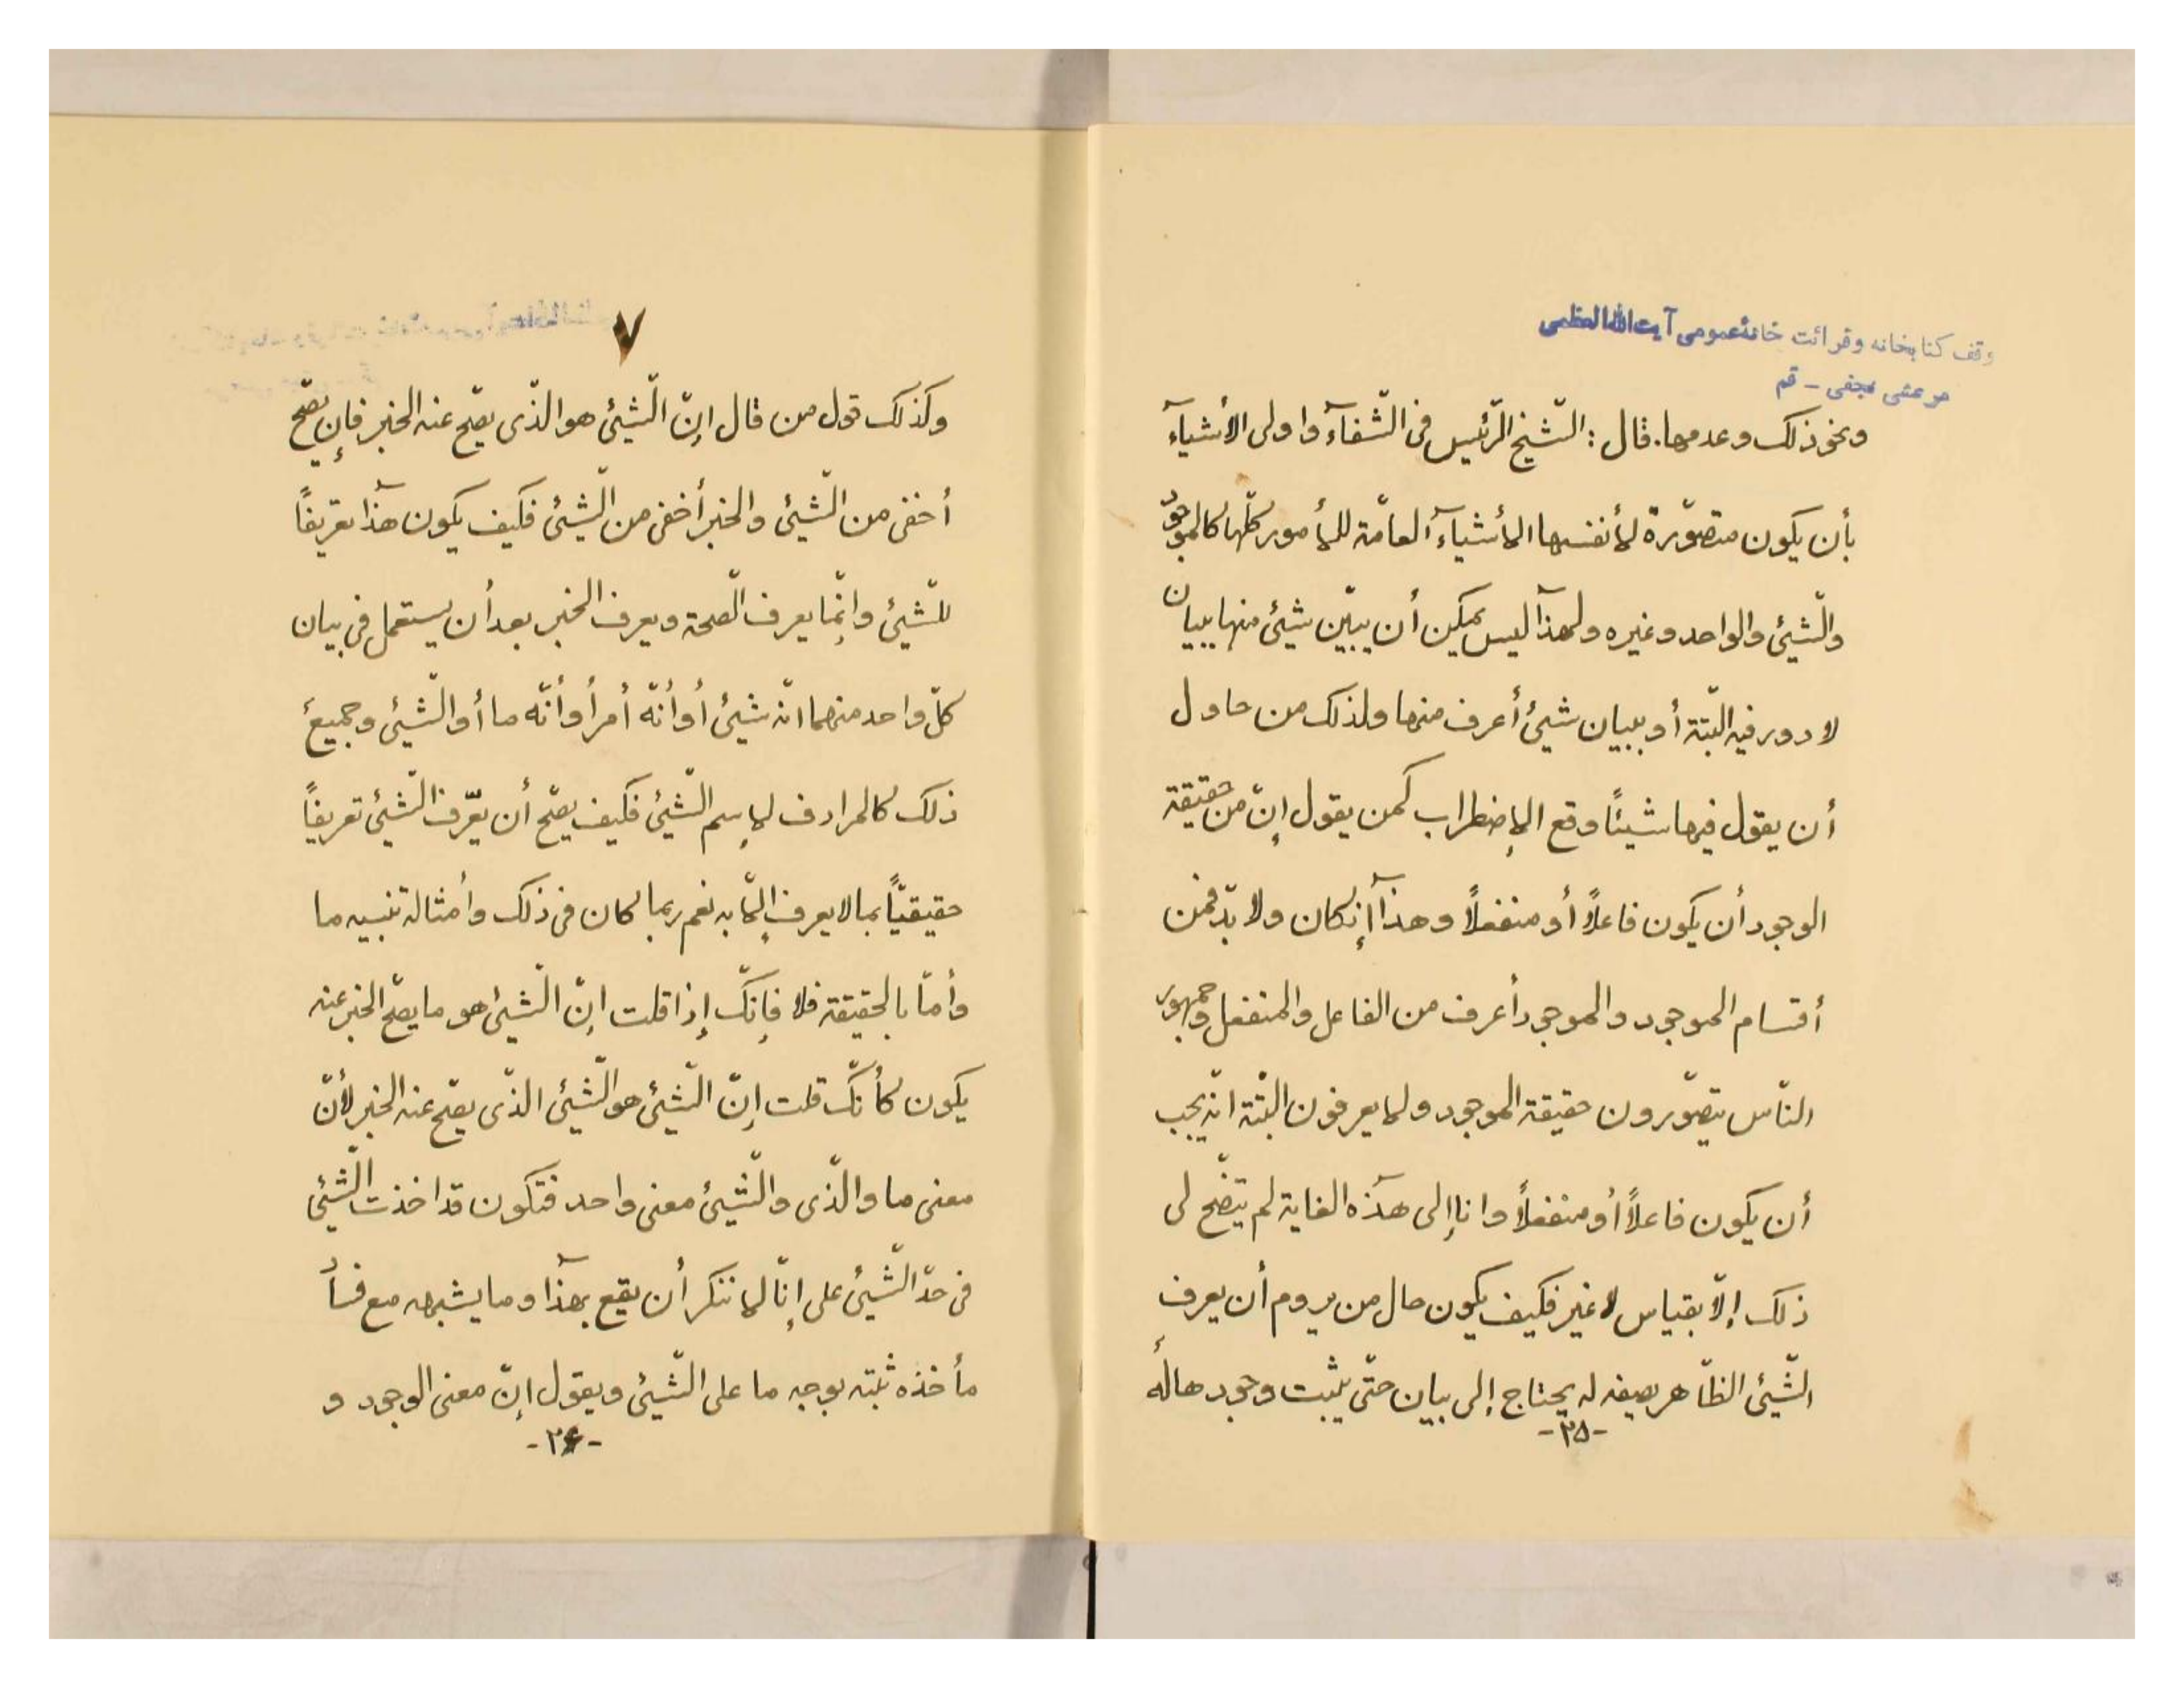 وقف کتابخانه وقرائت خانهٔعمومی آیت‌الله‌العظمی
مرعشی نجفی - قم
ونحو ذلک وعدمها. قال: الشّیخ الرّئیس فی الشّفآء واولی الأشیآء
بأن یکون متصوّرة لأنفسها الأشیآء العامّة للأمور کلّها کالموجود
والشّیئ والواحد وغیره ولهذآ لیس یمکن أن یبیّن شیئ منها ببیان
لا دور فیه البتّة أو ببیان شیئ أعرف منها ولذلک من حاول
أن یقول فیها شیئًا وقع الإضطراب کمن یقول إنّ من حقیقة
الوجود أن یکون فاعلاً أو منفعلاً وهذآ إنکان ولا بدّ فمن
أقسام الموجود والموجود أعرف من الفاعل والمنفعل وجمهور
النّاس یتصوّرون حقیقة الموجود ولا یعرفون البتّة انّه یجب
أن یکون فاعلاً أو منفعلاً وانا إلی هذه الغایة لم یتضّح لی
ذلک إلاّ بقیاس لا غیر فکیف یکون حال من یروم أن یعرف
الشّیئ الظّاهر بصفه له یحتاج إلی بیان حتّی یثبت وجود هاله
-۲۵-
۷
وکذلک قول من قال إنّ الشّیئ هو الذّی یصّح عنه الخبر فإن یصّح
أخفی من الشّیئ والخبر أخفی من الشّیئ فکیف یکون هذآ تعریفاً
للشّیئ وإنّما یعرف الصّحة ویعرف الخبر بعد أن یستعمل فی بیان
کلّ واحد منهما انّه شیئ أو أنّه أمر أو أنّه ما أو الشّیئ وجمیع
ذلک کالمرادف لإسم الشّیئ فکیف یصّح أن یعّرف الشّیئ تعریفاً
حقیقیّاً بما لا یعرف إلاّ به نعم ربما کان فی ذلک وأمثاله تنبیه ما
وأمّا بالحقیقة فلا فإنّک إذا قلت إنّ الشّیئ هو ما یصّح الخبر عنه
یکون کأنّک قلت إنّ الشّیئ هو الشّیئ الذّی یصّح عنه الخبر لأنّ
معنی ما والذّی والشّیئ معنی واحد فتکون قد اخذت الشّیئ
فی حدّ الشّیئ علی إنّا لا ننکر أن یقع بهذآ وما یشبهه مع فساد
مأخذه ثبته بوجه ما علی الشّیئ ویقول إنّ معنی الوجود و
-۲۶-